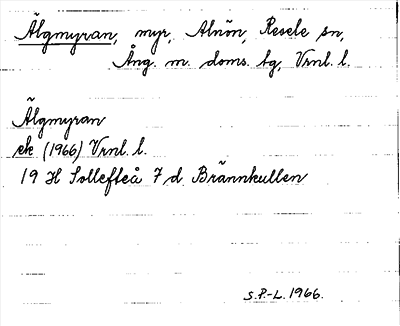 Älgmyran, myr, Alnön, Resele sn,
Ång. m. doms. tg, Vrnl. l.
Älgmyran
ek (1966) Vrnl. l.
19 H Sollefteå 7 d Brännkullen
S.P.-L. 1966.